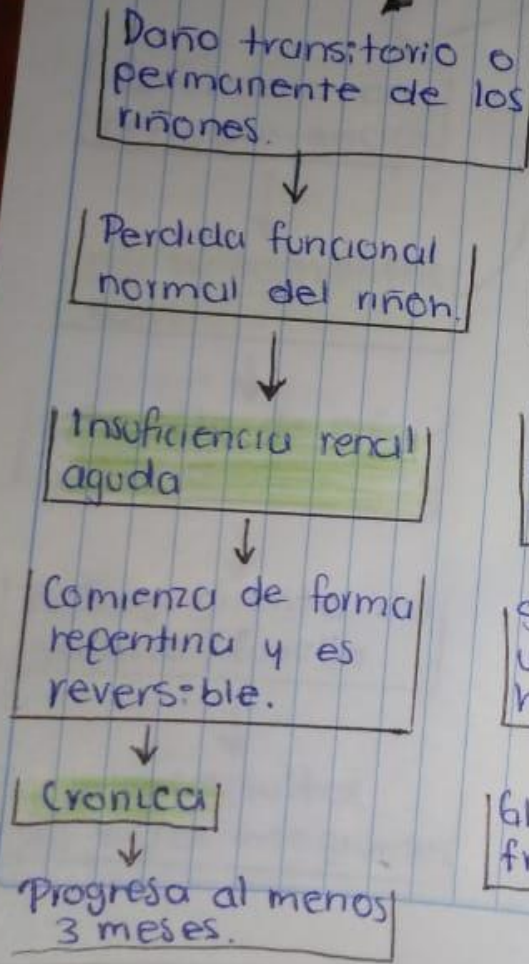 Daño transitorio o
permanente de los
riñones.
Perdida funcional
normal del riñon.
Insuficiencia renal
aguda
Comienza de forma
repentina y es
reversible.
Cronica
Progresa al menos
3 meses.